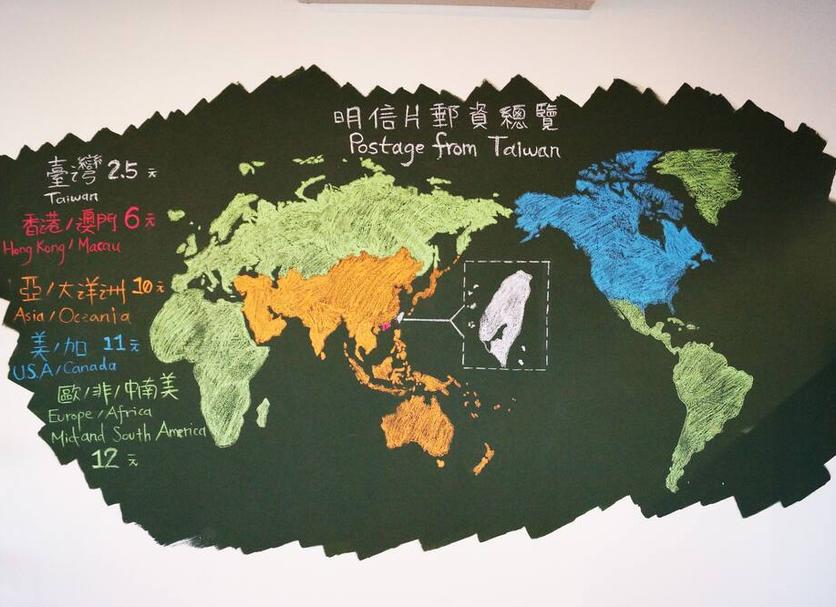 明信片郵資總覽
Postage from Taiwan
臺灣 2.5 元
Taiwan
香港/澳門 6 元
Hong Kong / Macau
亞/大洋洲 10 元
Asia / Oceania
美/加 11 元
U.S.A / Canada
歐/非/中南美
Europe / Africa
Mid and South America
12 元